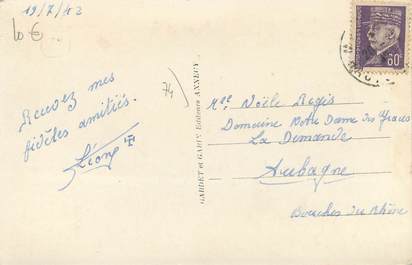 19/7/43
10 €
Recevez mes
fidèles amitiés.
Léone
74
GARDET et GARIN Editeurs ANNECY
60c
Mlle Noële Regis
Domaine Notre Dame des Grâces
La Demande
Aubagne
Bouches du Rhône